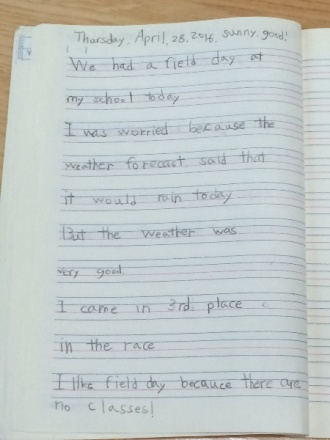 Thursday, April, 28, 2016, sunny, good!
We had a field day at
my school today
I was worried because the
weather forecast said that
it would rain today
But the weather was
very good.
I came in 3rd place
in the race
I like field day because there are
no classes!